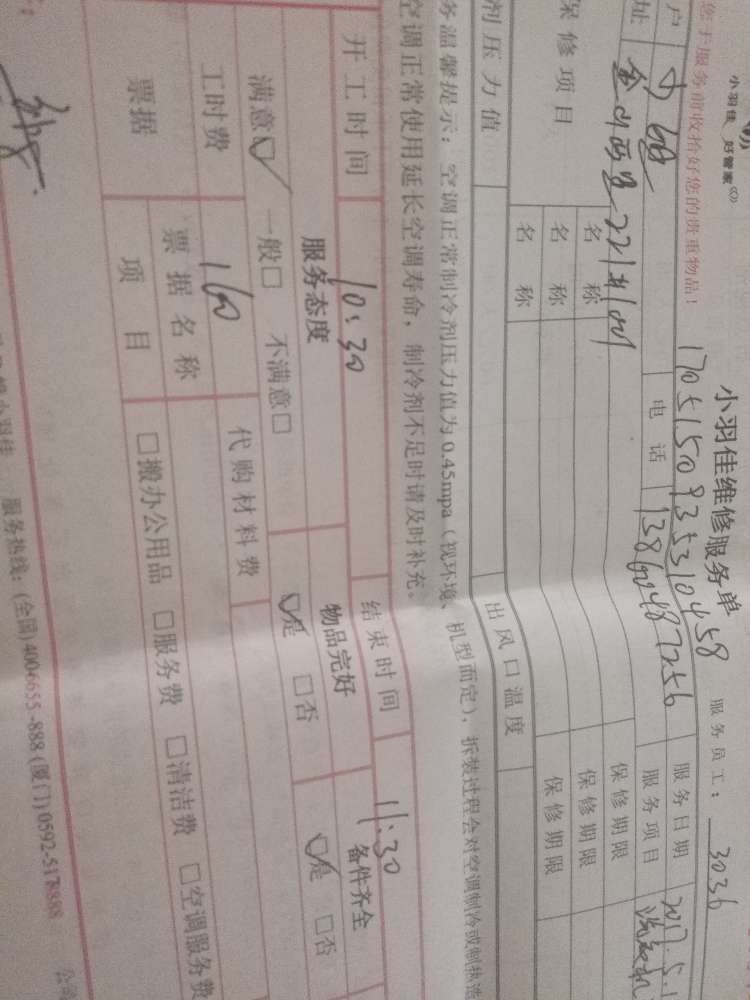 小羽佳 好管家
小羽佳维修服务单
您于服务前收拾好您的贵重物品!
17051509353310458
服务员工: 3036
户
电话
服务日期 2017.5.1
址
服务项目
保修项目
名称
保修期限
名称
保修期限
名称
保修期限
剂压力值
出风口温度
务温馨提示: 空调正常制冷剂压力值为0.45mpa(视环境、机型而定), 拆装过程会对空调制冷或制热造
空调正常使用延长空调寿命, 制冷剂不足时请及时补充。
开工时间 10:30 结束时间 11:30
服务态度 物品完好 备件齐全
满意☑ 一般□ 不满意□ ☑是 □否 ☑是 □否
工时费 160 代购材料费
票据
票据名称
项目
□搬办公用品 □服务费 □清洁费 □空调服务费
小羽佳 服务热线: (全国)4006655-888 (厦门)0592-5178888